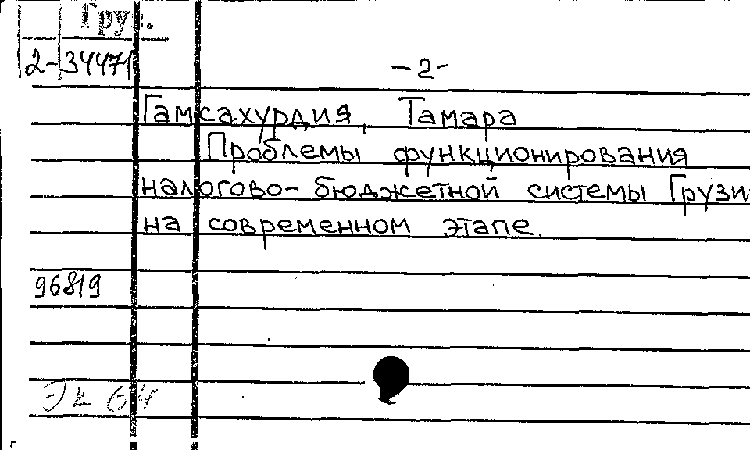 Груз.
2-34471
-2-
Гамсахурдия, Тамара
Проблемы функционирования
налогово-бюджетной системы Грузи
на современном этапе.
96819
Эк 64